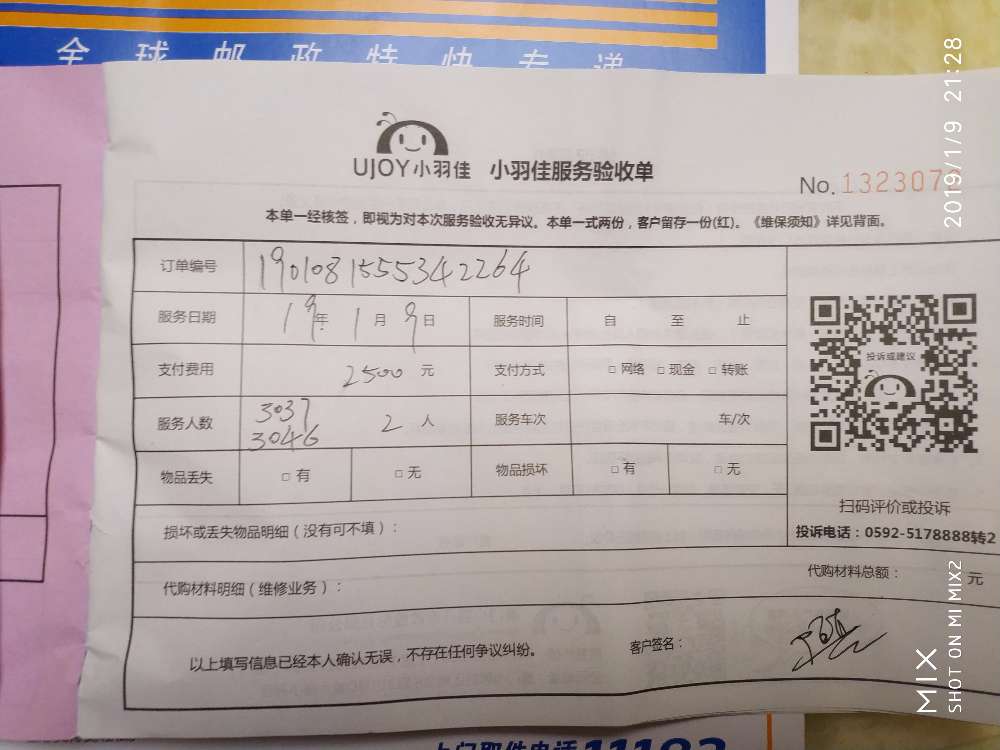 全球邮政特快专递
UJOY小羽佳 小羽佳服务验收单
No. 132307
本单一经核签，即视为对本次服务验收无异议。本单一式两份，客户留存一份(红)。《维保须知》详见背面。
订单编号 1901081555342264
服务日期 19年 1月 9日 服务时间 自 至 止
支付费用 2500 元 支付方式 □ 网络 □ 现金 □ 转账
服务人数 3037 3046 2 人 服务车次 车/次
物品丢失 □ 有 □ 无 物品损坏 □ 有 □ 无
投诉或建议
扫码评价或投诉
投诉电话：0592-5178888转2
损坏或丢失物品明细（没有可不填）：
代购材料明细（维修业务）：
代购材料总额： 元
以上填写信息已经本人确认无误，不存在任何争议纠纷。
客户签名：
上门取件电话11183
2019/1/9 21:28
MIX
SHOT ON MI MIX2